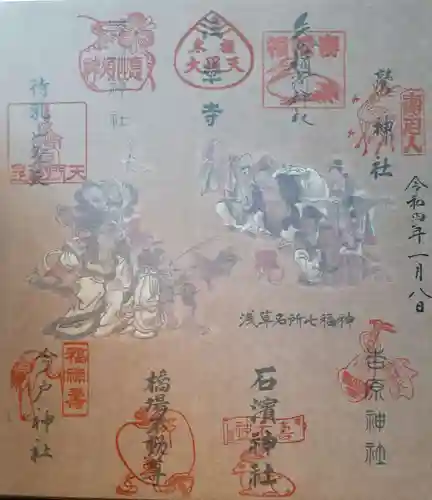 矢先稲荷神社
鷲神社
壽老人
浅草寺
大黒天
神社
待乳山聖天
令和四年一月八日
浅草名所七福神
吉原神社
石濱神社
橋場不動尊
今戸神社
福禄寿